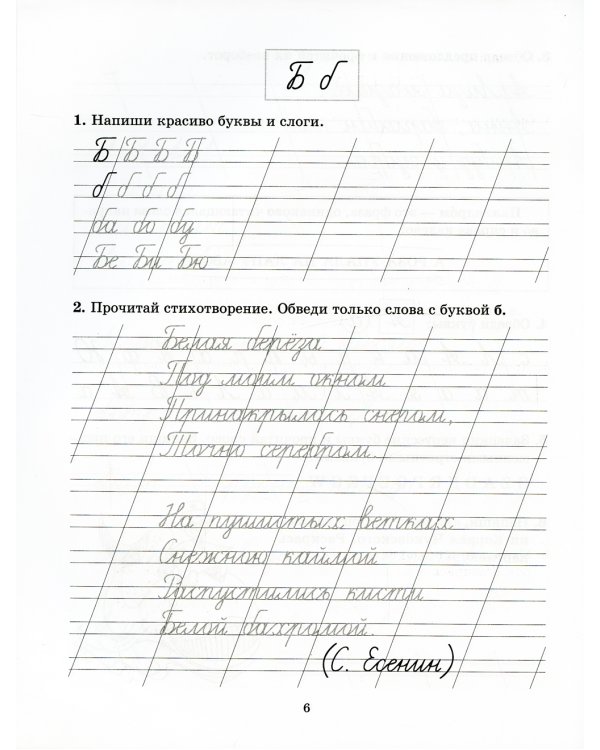 Б б
1. Напиши красиво буквы и слоги.
Б Б Б Б
б б б б
ба бо бу
Бе Би Бю
2. Прочитай стихотворение. Обведи только слова с буквой б.
Белая берёза
Под моим окном
Принакрылась снегом,
Точно серебром.
На пушистых ветках
Снежною каймой
Распустились кисти
Белой бахромой.
(С. Есенин)
6